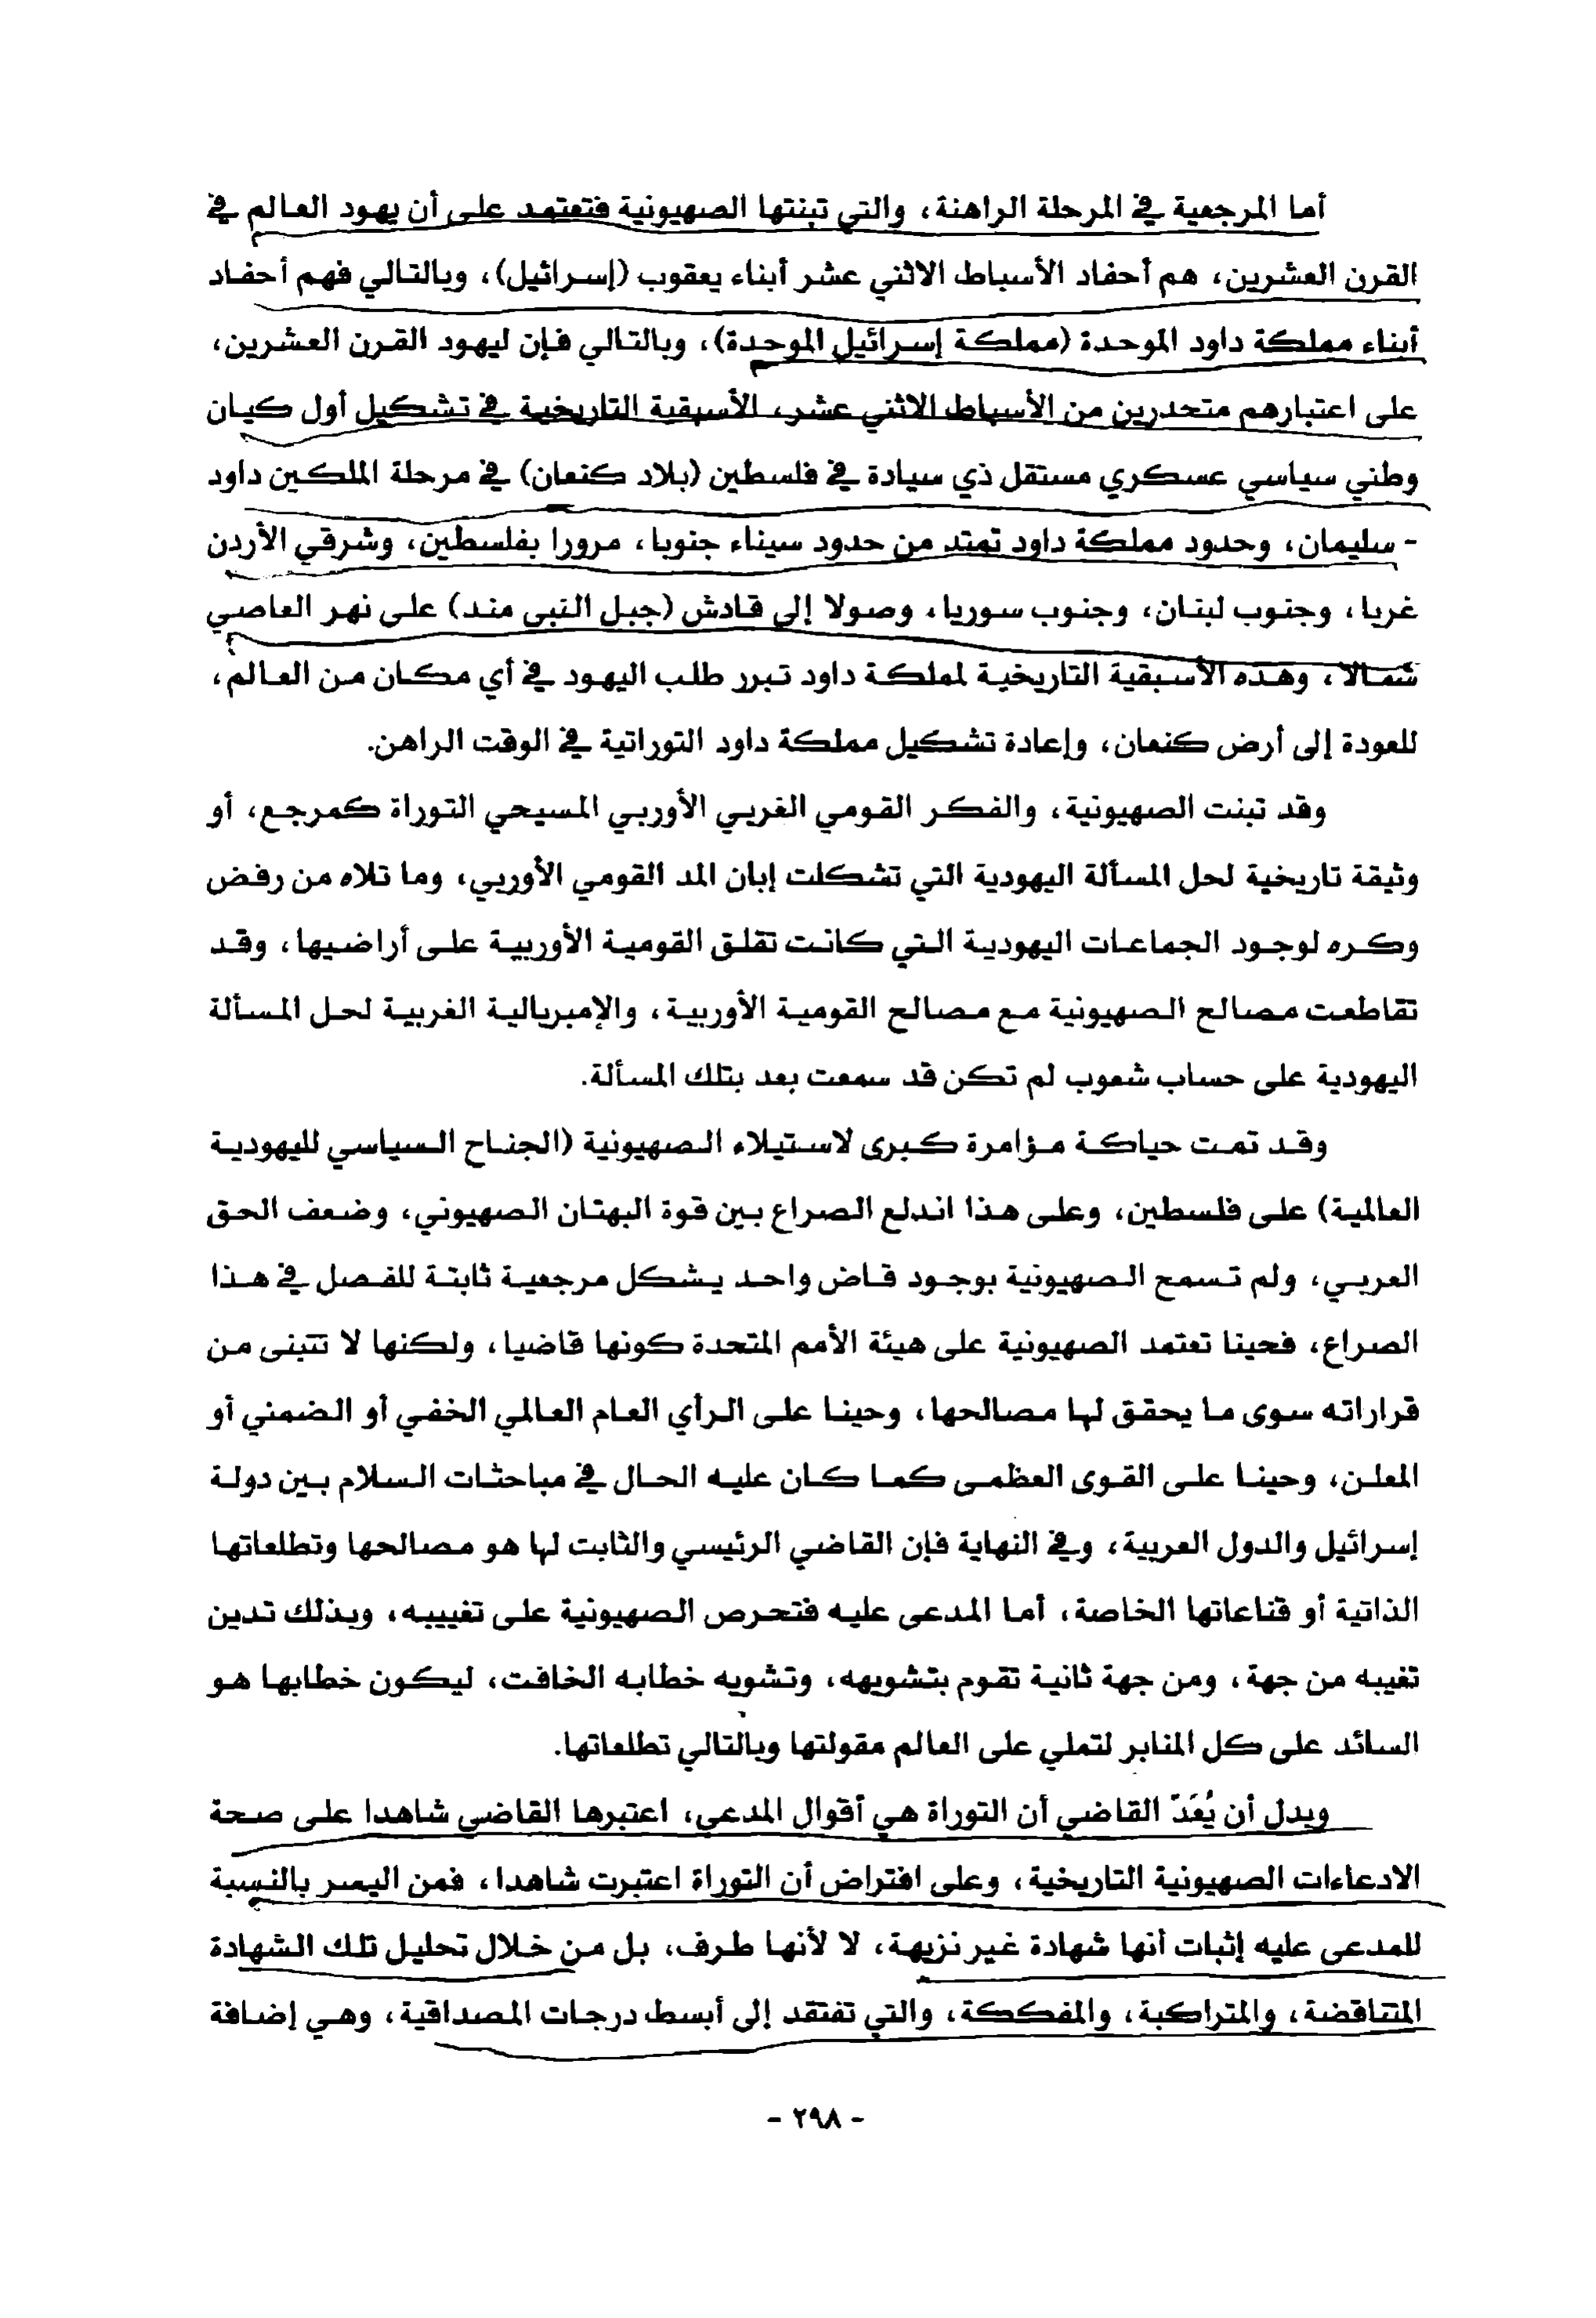 أما المرجعية في المرحلة الراهنة، والتي تبنتها الصهيونية فتعتمد على أن يهود العالم في
القرن العشرين، هم أحفاد الأسباط الاثني عشر أبناء يعقوب (إسرائيل)، وبالتالي فهم أحفاد
أبناء مملكة داود الموحدة (مملكة إسرائيل الموحدة)، وبالتالي فإن ليهود القرن العشرين،
على اعتبارهم متحدرين من الأسباط الاثني عشر، الأسبقية التاريخية في تشكيل أول كيان
وطني سياسي عسكري مستقل ذي سيادة في فلسطين (بلاد كنعان) في مرحلة الملكين داود
- سليمان، وحدود مملكة داود تمتد من حدود سيناء جنوبا، مرورا بفلسطين، وشرقي الأردن
غربا، وجنوب لبنان، وجنوب سوريا، وصولا إلى قادش (جبل النبي مند) على نهر العاصي
شمالا، وهذه الأسبقية التاريخية لمملكة داود تبرر طلب اليهود في أي مكان من العالم،
للعودة إلى أرض كنعان، وإعادة تشكيل مملكة داود التوراتية في الوقت الراهن.
وقد تبنت الصهيونية، والفكر القومي الغربي الأوربي المسيحي التوراة كمرجع، أو
وثيقة تاريخية لحل المسألة اليهودية التي تشكلت إبان المد القومي الأوربي، وما تلاه من رفض
وكره لوجود الجماعات اليهودية التي كانت تقلق القومية الأوربية على أراضيها، وقد
تقاطعت مصالح الصهيونية مع مصالح القومية الأوربية، والإمبريالية الغربية لحل المسألة
اليهودية على حساب شعوب لم تكن قد سمعت بعد بتلك المسألة.
وقد تمت حياكة مؤامرة كبرى لاستيلاء الصهيونية (الجناح السياسي لليهودية
العالمية) على فلسطين، وعلى هذا اندلع الصراع بين قوة البهتان الصهيوني، وضعف الحق
العربي، ولم تسمح الصهيونية بوجود قاض واحد يشكل مرجعية ثابتة للفصل في هذا
الصراع، فحينا تعتمد الصهيونية على هيئة الأمم المتحدة كونها قاضيا، ولكنها لا تتبنى من
قراراته سوى ما يحقق لها مصالحها، وحينا على الرأي العام العالمي الخفي أو الضمني أو
المعلن، وحينا على القوى العظمى كما كان عليه الحال في مباحثات السلام بين دولة
إسرائيل والدول العربية، وفي النهاية فإن القاضي الرئيسي والثابت لها هو مصالحها وتطلعاتها
الذاتية أو قناعاتها الخاصة، أما المدعى عليه فتحرص الصهيونية على تغييبه، وبذلك تدين
تغيبه من جهة، ومن جهة ثانية تقوم بتشويهه، وتشويه خطابه الخافت، ليكون خطابها هو
السائد على كل المنابر لتملي على العالم مقولتها وبالتالي تطلعاتها.
وبدل أن يُعَدّ القاضي أن التوراة هي أقوال المدعي، اعتبرها القاضي شاهدا على صحة
الادعاءات الصهيونية التاريخية، وعلى افتراض أن التوراة اعتبرت شاهدا، فمن اليسر بالنسبة
للمدعى عليه إثبات أنها شهادة غير نزيهة، لا لأنها طرف، بل من خلال تحليل تلك الشهادة
المتناقضة، والمتراكبة، والمفككة، والتي تفتقد إلى أبسط درجات المصداقية، وهي إضافة
- ٢٩٨ -